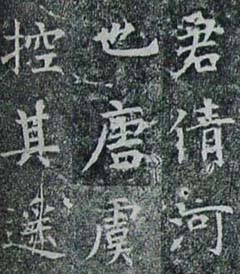 君倩河
也唐虞
控其